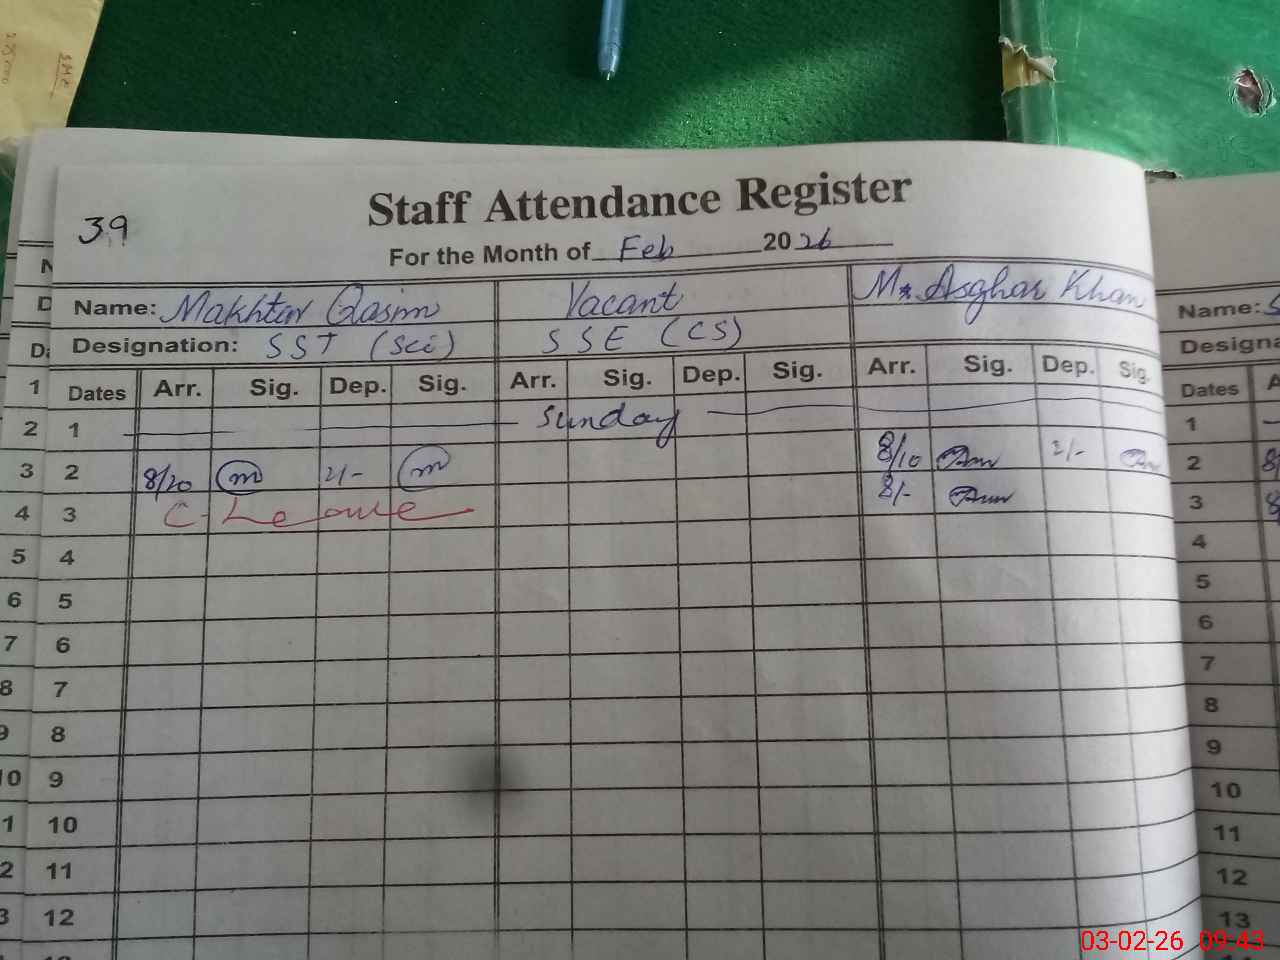 39
Staff Attendance Register
For the Month of Feb 2026
Name: Makhtar Qasim Vacant Mr. Asghar Khan
Designation: SST (Sci) SSE (CS)
Dates Arr. Sig. Dep. Sig. Arr. Sig. Dep. Sig. Arr. Sig. Dep. Sig.
1 Sunday
2 8/20 m 2/- m 8/10 2/-
3 C-Leave 8/-
4
5
6
7
8
9
10
11
12
Name:
Dates
1
2
3
4
5
6
7
8
9
10
11
12
13
1
2
3
4
5
6
7
8
03-02-26 09:43